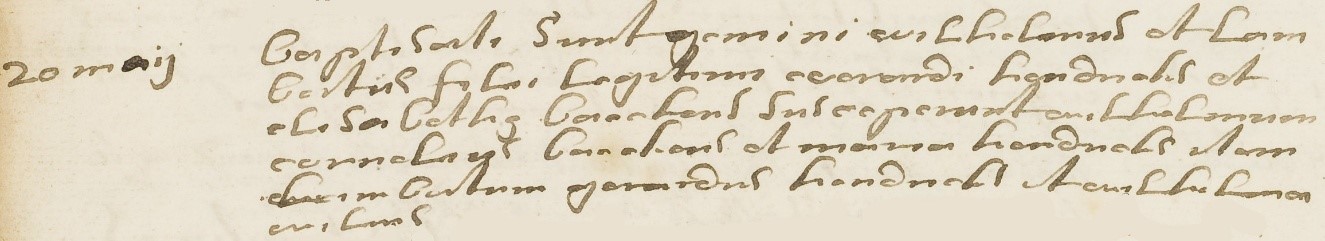 20 maij baptisati sunt gemini wilhelmus et lam
bertus filii legitimi everardi hendricks et
elisabethæ baeckens susceperunt wilhelmum
cornelius baeckens et maria hendricks item
lambertum gerardus hendricks et wilhelma